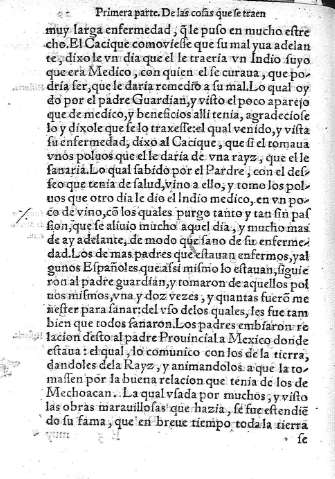 Primera parte. De las cosas que se traen
muy larga enfermedad, q̃ le puso en mucho estre
cho. El Cacique comoviesse que su mal yua adelan
te, dixo le vn dia que el le traeria vn Indio suyo
que era Medico, con quien el se curaua, que po-
dria ser, que le daria remedio a su mal. Lo qual oy
do por el padre Guardian, y visto el poco aparejo
que de medico, y beneficios alli tenia, agradeciose
lo y dixole que se lo traxesse: el qual venido, y vista
su enfermedad, dixo al Cacique, que si el tomaua
vnos poluos que el le daria de vna rayz, que el le
sanaria. Lo qual sabido por el Pardre, con el des-
seo que tenia de salud, vino a ello, y tomo los pol-
uos que otro dia le dio el Indio medico, en vn po-
co de vino, cõ los quales purgo tanto y tan sin pas
sion, que se aliuio mucho aquel dia, y mucho mas
de ay adelante, de modo que sano de su enferme-
dad. Los de mas padres que estauan enfermos, y al
gunos Españoles que assi mismo lo estauan, siguie
ron al padre guardian, y tomaron de aquellos pol
uos mismos, vna y doz vezes, y quantas fuerõ me
nester para sanar: del vso delos quales, les fue tam
bien que todos sanaron. Los padres embiaron re
lacion desto al padre Prouincial a Mexico donde
estaua: el qual, lo comunico con los de la tierra,
dandoles dela Rayz, y animandolos a que la to-
massen por la buena relacion que tenia de los de
Mechoacan. La qual vsada por muchos, y visto
las obras marauillosas que hazia, se fue estendiẽ
do su fama, que en breue tiempo toda la tierra
se